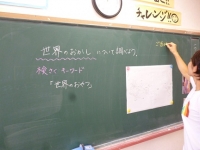 チャレンジ
世界のおかしについて調べよう。
検さくキーワード
「世界のおやつ」